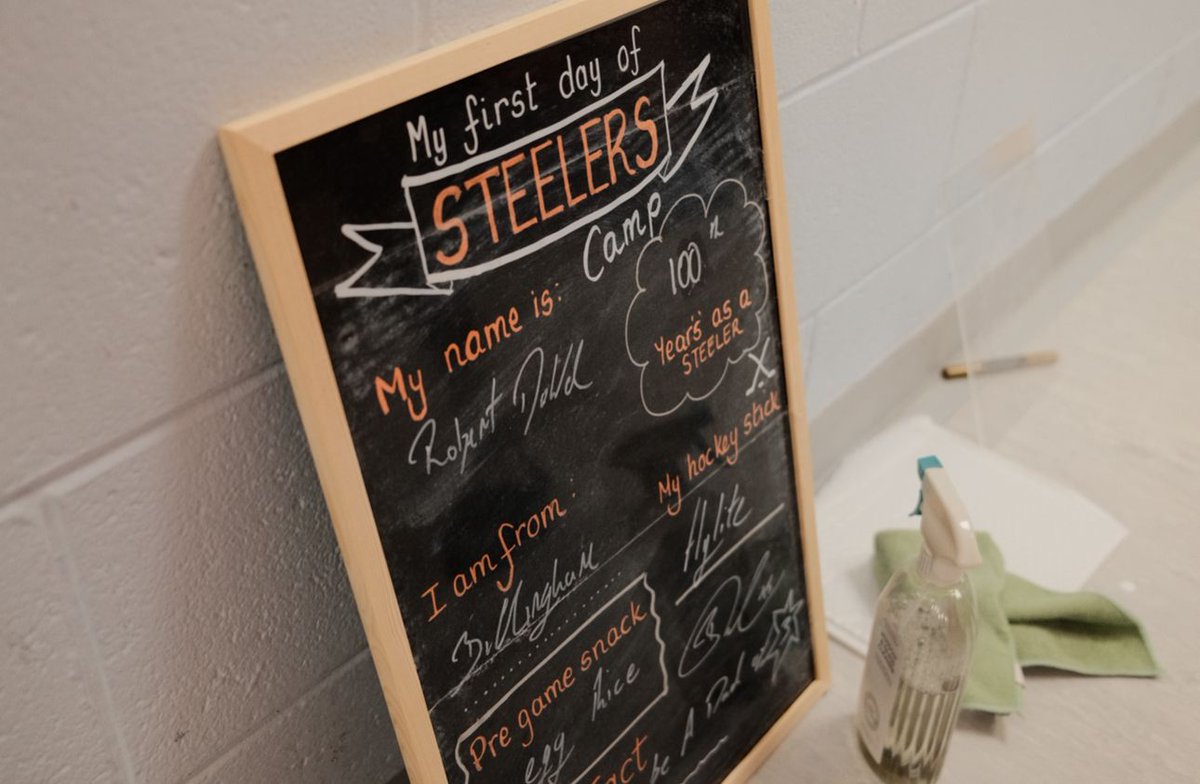 My first day of
STEELERS
Camp
100th
Year's' as a
STEELER
X
My name is:
Robert Dowd
My hockey stick
Hylite
I am from:
Billingham
Pre game snack
egg Rice
Fact
be A Dad